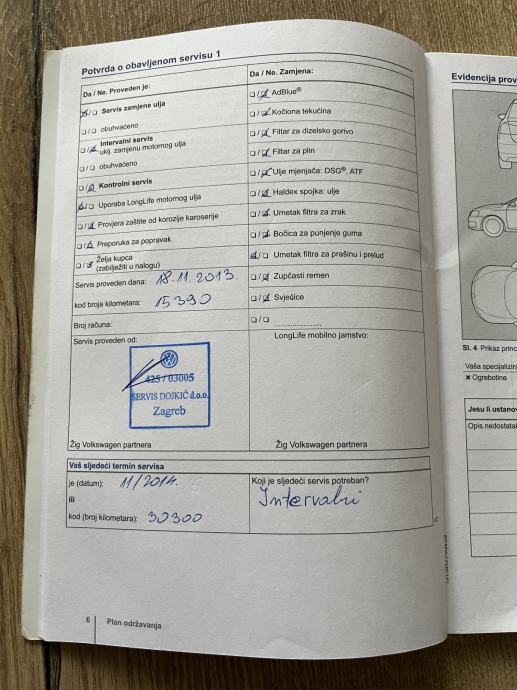 Potvrda o obavljenom servisu 1
Da / Ne. Proveden je:
Servis zamjene ulja
obuhvaćeno
Intervalni servis
uklj. zamjenu motornog ulja
obuhvaćeno
Kontrolni servis
Uporaba LongLife motornog ulja
Provjera zaštite od korozije karoserije
Preporuka za popravak
Želja kupca
(zabilježiti u nalogu)
Servis proveden dana: 18.11.2013.
kod broja kilometara: 15390
Broj računa:
Servis proveden od:
425 / 03005
SERVIS DOJKIĆ d.o.o.
Zagreb
Žig Volkswagen partnera
Da / Ne. Zamjena:
AdBlue®
Kočiona tekućina
Filtar za dizelsko gorivo
Filtar za plin
Ulje mjenjača: DSG®, ATF
Haldex spojka: ulje
Umetak filtra za zrak
Bočica za punjenje guma
Umetak filtra za prašinu i prelud
Zupčasti remen
Svjećice
LongLife mobilno jamstvo:
Žig Volkswagen partnera
Vaš sljedeći termin servisa
je (datum): 11/2014.
ili
kod (broj kilometara): 30300
Koji je sljedeći servis potreban?
Intervalni
6 Plan održavanja
Evidencija prov
Sl. 4 Prikaz princ
Vaša specijalizira
× Ogrebotine
Jesu li ustanov
Opis nedostatak